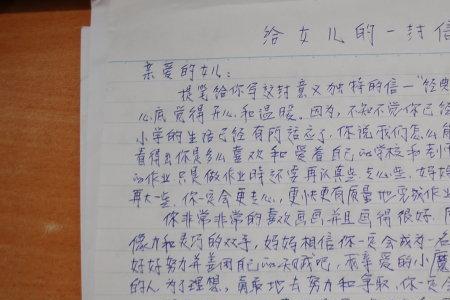 给女儿的一封信
亲爱的女儿：
提笔给你写这封意义独特的信一“经典
心底觉得开心和温暖。因为，不知不觉你已经
小学的生活已经有所适应了，你说我们怎么能
看得出你是多么喜欢和爱着自己的学校和老师
的作业只是做作业时还要再认真些，专心些，妈妈
再大一些，你一定会更专心，更快更有质量地完成作业
你非常非常的喜欢画画并且画得很好，
像力和灵巧的双手，妈妈相信你一定会成为一名
好好努力并善用自己的 吧，我亲爱的小
的人，为了理想，勇敢地去努力和争取，你一定